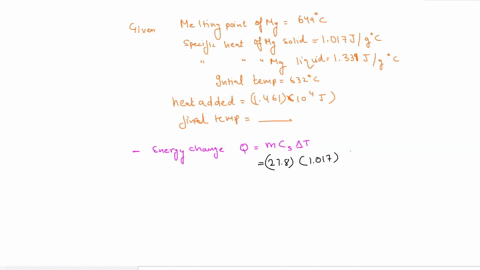 Given Melting point of Mg = 649°C
Specific heat of Mg solid = 1.017 J/g°C
" " " Mg liquid = 1.338 J/g°C
Initial temp = 632°C
heat added = (1.461)×10⁴ J)
final temp = ____
- Energy change Q = m Cs ΔT
= (27.8) (1.017)